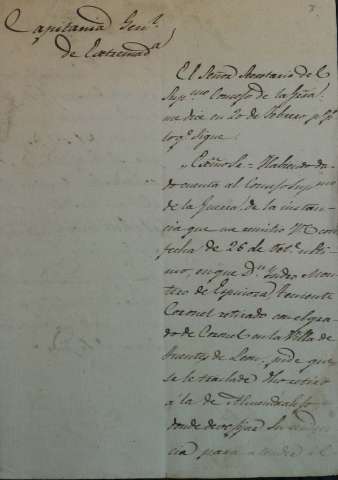 Capitanía Genl.
de Extremadª
El Señor Secretario del
Supmo Consejo de la Grra
me dice en 20 de Febrero ppdo
lo qe sigue.
"Exmo Sr = Habiendo da-
do cuenta al Consejo Supmo
de la Guerra, de la instan-
cia que me remitio V.E. con
fecha de 26 de Octe ulti-
mo, en que Dn Isidro Mon-
tero de Espinosa, Teniente
Coronel retirado con el gra-
do de Coronel en la Villa de
Fuentes de Leon, pide que
se le traslade dho retiro
á la de Almendralejo
donde desea fijar su residen-
cia para atender al